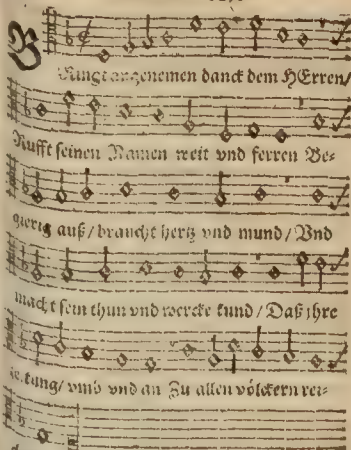 Bringt angenemen danck dem HErren/
Rufft seinen Namen weit vnd ferren Be-
gierig auß/ braucht hertz vnd mund/ Vnd
macht sein thun vnd wercke kund/ Daß jhre
vmb vnd an Zu allen völckern rei-